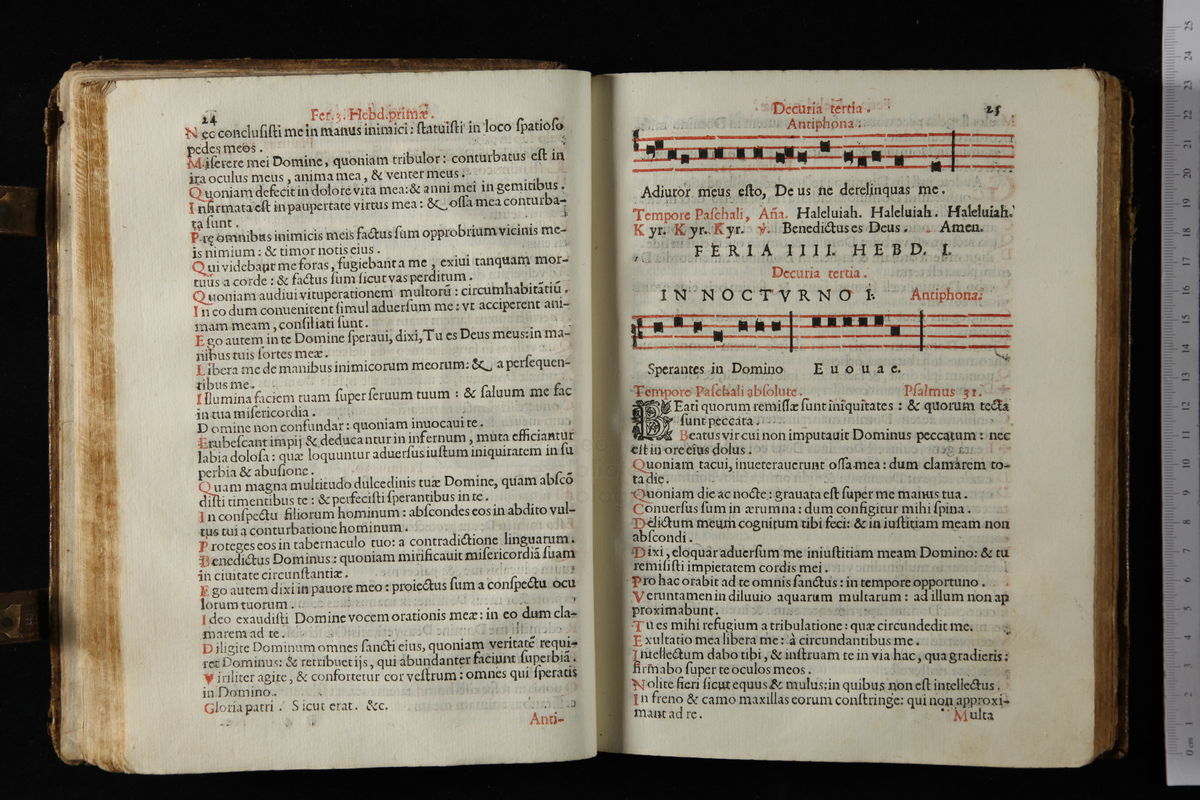 24
Fer. 3. Hebd. primæ.
Nec conclusisti me in manus inimici: statuisti in loco spatioso
pedes meos.
Miserere mei Domine, quoniam tribulor: conturbatus est in
ira oculus meus, anima mea, & venter meus.
Quoniam defecit in dolore vita mea: & anni mei in gemitibus.
Infirmata est in paupertate virtus mea: & ossa mea conturba-
ta sunt.
Prę omnibus inimicis meis factus sum opprobrium vicinis me-
is nimium: & timor notis eius.
Qui videbant me foras, fugiebant a me, exiui tanquam mor-
tuus a corde: & factus sum sicut vas perditum.
Quoniam audiui vituperationem multorũ: circumhabitãtiũ.
In eo dum conuenirent simul aduersum me: vt acciperent ani-
mam meam, consiliati sunt.
Ego autem in te Domine speraui, dixi, Tu es Deus meus: in ma-
nibus tuis sortes meæ.
Libera me de manibus inimicorum meorum: & a persequen-
tibus me.
Illumina faciem tuam super seruum tuum: & saluum me fac
in tua misericordia.
Domine non confundar: quoniam inuocaui te.
Erubescant impij & deducantur in infernum, muta efficiantur
labia dolosa: quæ loquuntur aduersus iustum iniquitatem in su
perbia & abusione.
Quam magna multitudo dulcedinis tuæ Domine, quam abscõ
disti timentibus te: & perfecisti sperantibus in te.
In conspectu filiorum hominum: abscondes eos in abdito vul-
tus tui a conturbatione hominum.
Proteges eos in tabernaculo tuo: a contradictione linguarum.
Benedictus Dominus: quoniam mirificauit misericordiã suam
in ciuitate circunstantiæ.
Ego autem dixi in pauore meo: proiectus sum a conspectu ocu
lorum tuorum.
Ideo exaudisti Domine vocem orationis meæ: in eo dum cla-
marem ad te.
Diligite Dominum omnes sancti eius, quoniam veritatẽ requi-
ret Dominus: & retribuet ijs, qui abundanter faciunt superbiã.
Viriliter agite, & confortetur cor vestrum: omnes qui speratis
in Domino.
Gloria patri. Sicut erat. &c.
Anti-
Decuria tertia.
25
Antiphona:
Adiutor meus esto, Deus ne derelinquas me.
Tempore Paschali, Aña. Haleluiah. Haleluiah. Haleluiah.
Kyr. Kyr. Kyr. ℣. Benedictus es Deus. Amen.
FERIA IIII. HEBD. I.
Decuria tertia.
IN NOCTVRNO I. Antiphona:
Sperantes in Domino E u o u a e.
Tempore Paschali absolute. Psalmus 31.
BEati quorum remissæ sunt iniquitates: & quorum tecta
sunt peccata.
Beatus vir cui non imputauit Dominus peccatum: nec
est in ore eius dolus.
Quoniam tacui, inueterauerunt ossa mea: dum clamarem to-
ta die.
Quoniam die ac nocte: grauata est super me manus tua.
Conuersus sum in ærumna: dum configitur mihi spina.
Delictum meum cognitum tibi feci: & in iustitiam meam non
abscondi.
Dixi, eloquar aduersum me iniustitiam meam Domino: & tu
remisisti impietatem cordis mei.
Pro hac orabit ad te omnis sanctus: in tempore opportuno.
Veruntamen in diluuio aquarum multarum: ad illum non ap
proximabunt.
Tu es mihi refugium a tribulatione: quæ circundedit me.
Exultatio mea libera me: à circundantibus me.
Intellectum dabo tibi, & instruam te in via hac, qua gradieris:
firmabo super te oculos meos.
Nolite fieri sicut equus & mulus: in quibus non est intellectus.
In freno & camo maxillas eorum constringe: qui non approxi-
mant ad te.
Multa